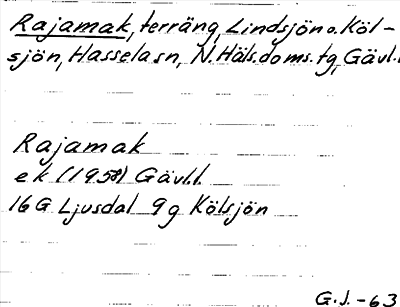 Rajamak, terräng, Lindsjön o. Köl-
sjön, Hassela sn, N. Häls. doms. tg, Gävl.l.
Rajamak
ek (1958) Gävl.l.
16 G Ljusdal 9g Kölsjön
G.J. -63